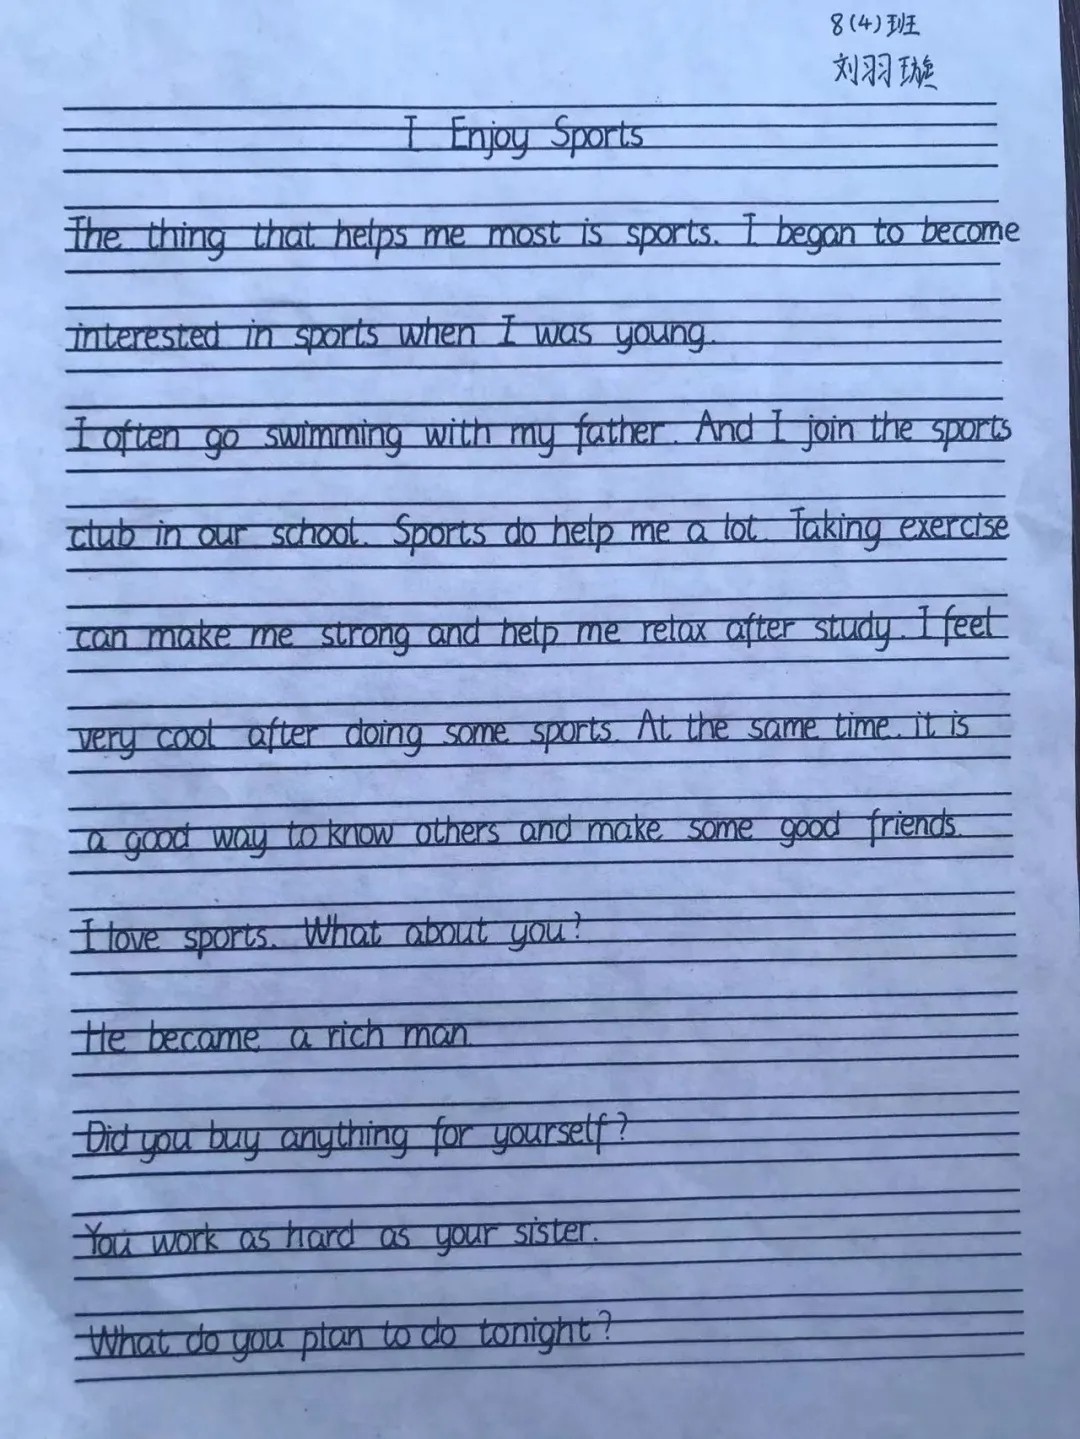 8(4)班
刘羽璇
I Enjoy Sports
The thing that helps me most is sports. I began to become
interested in sports when I was young.
I often go swimming with my father. And I join the sports
club in our school. Sports do help me a lot. Taking exercise
can make me strong and help me relax after study. I feel
very cool after doing some sports. At the same time. it is
a good way to know others and make some good friends.
I love sports. What about you?
He became a rich man.
Did you buy anything for yourself?
You work as hard as your sister.
What do you plan to do tonight?